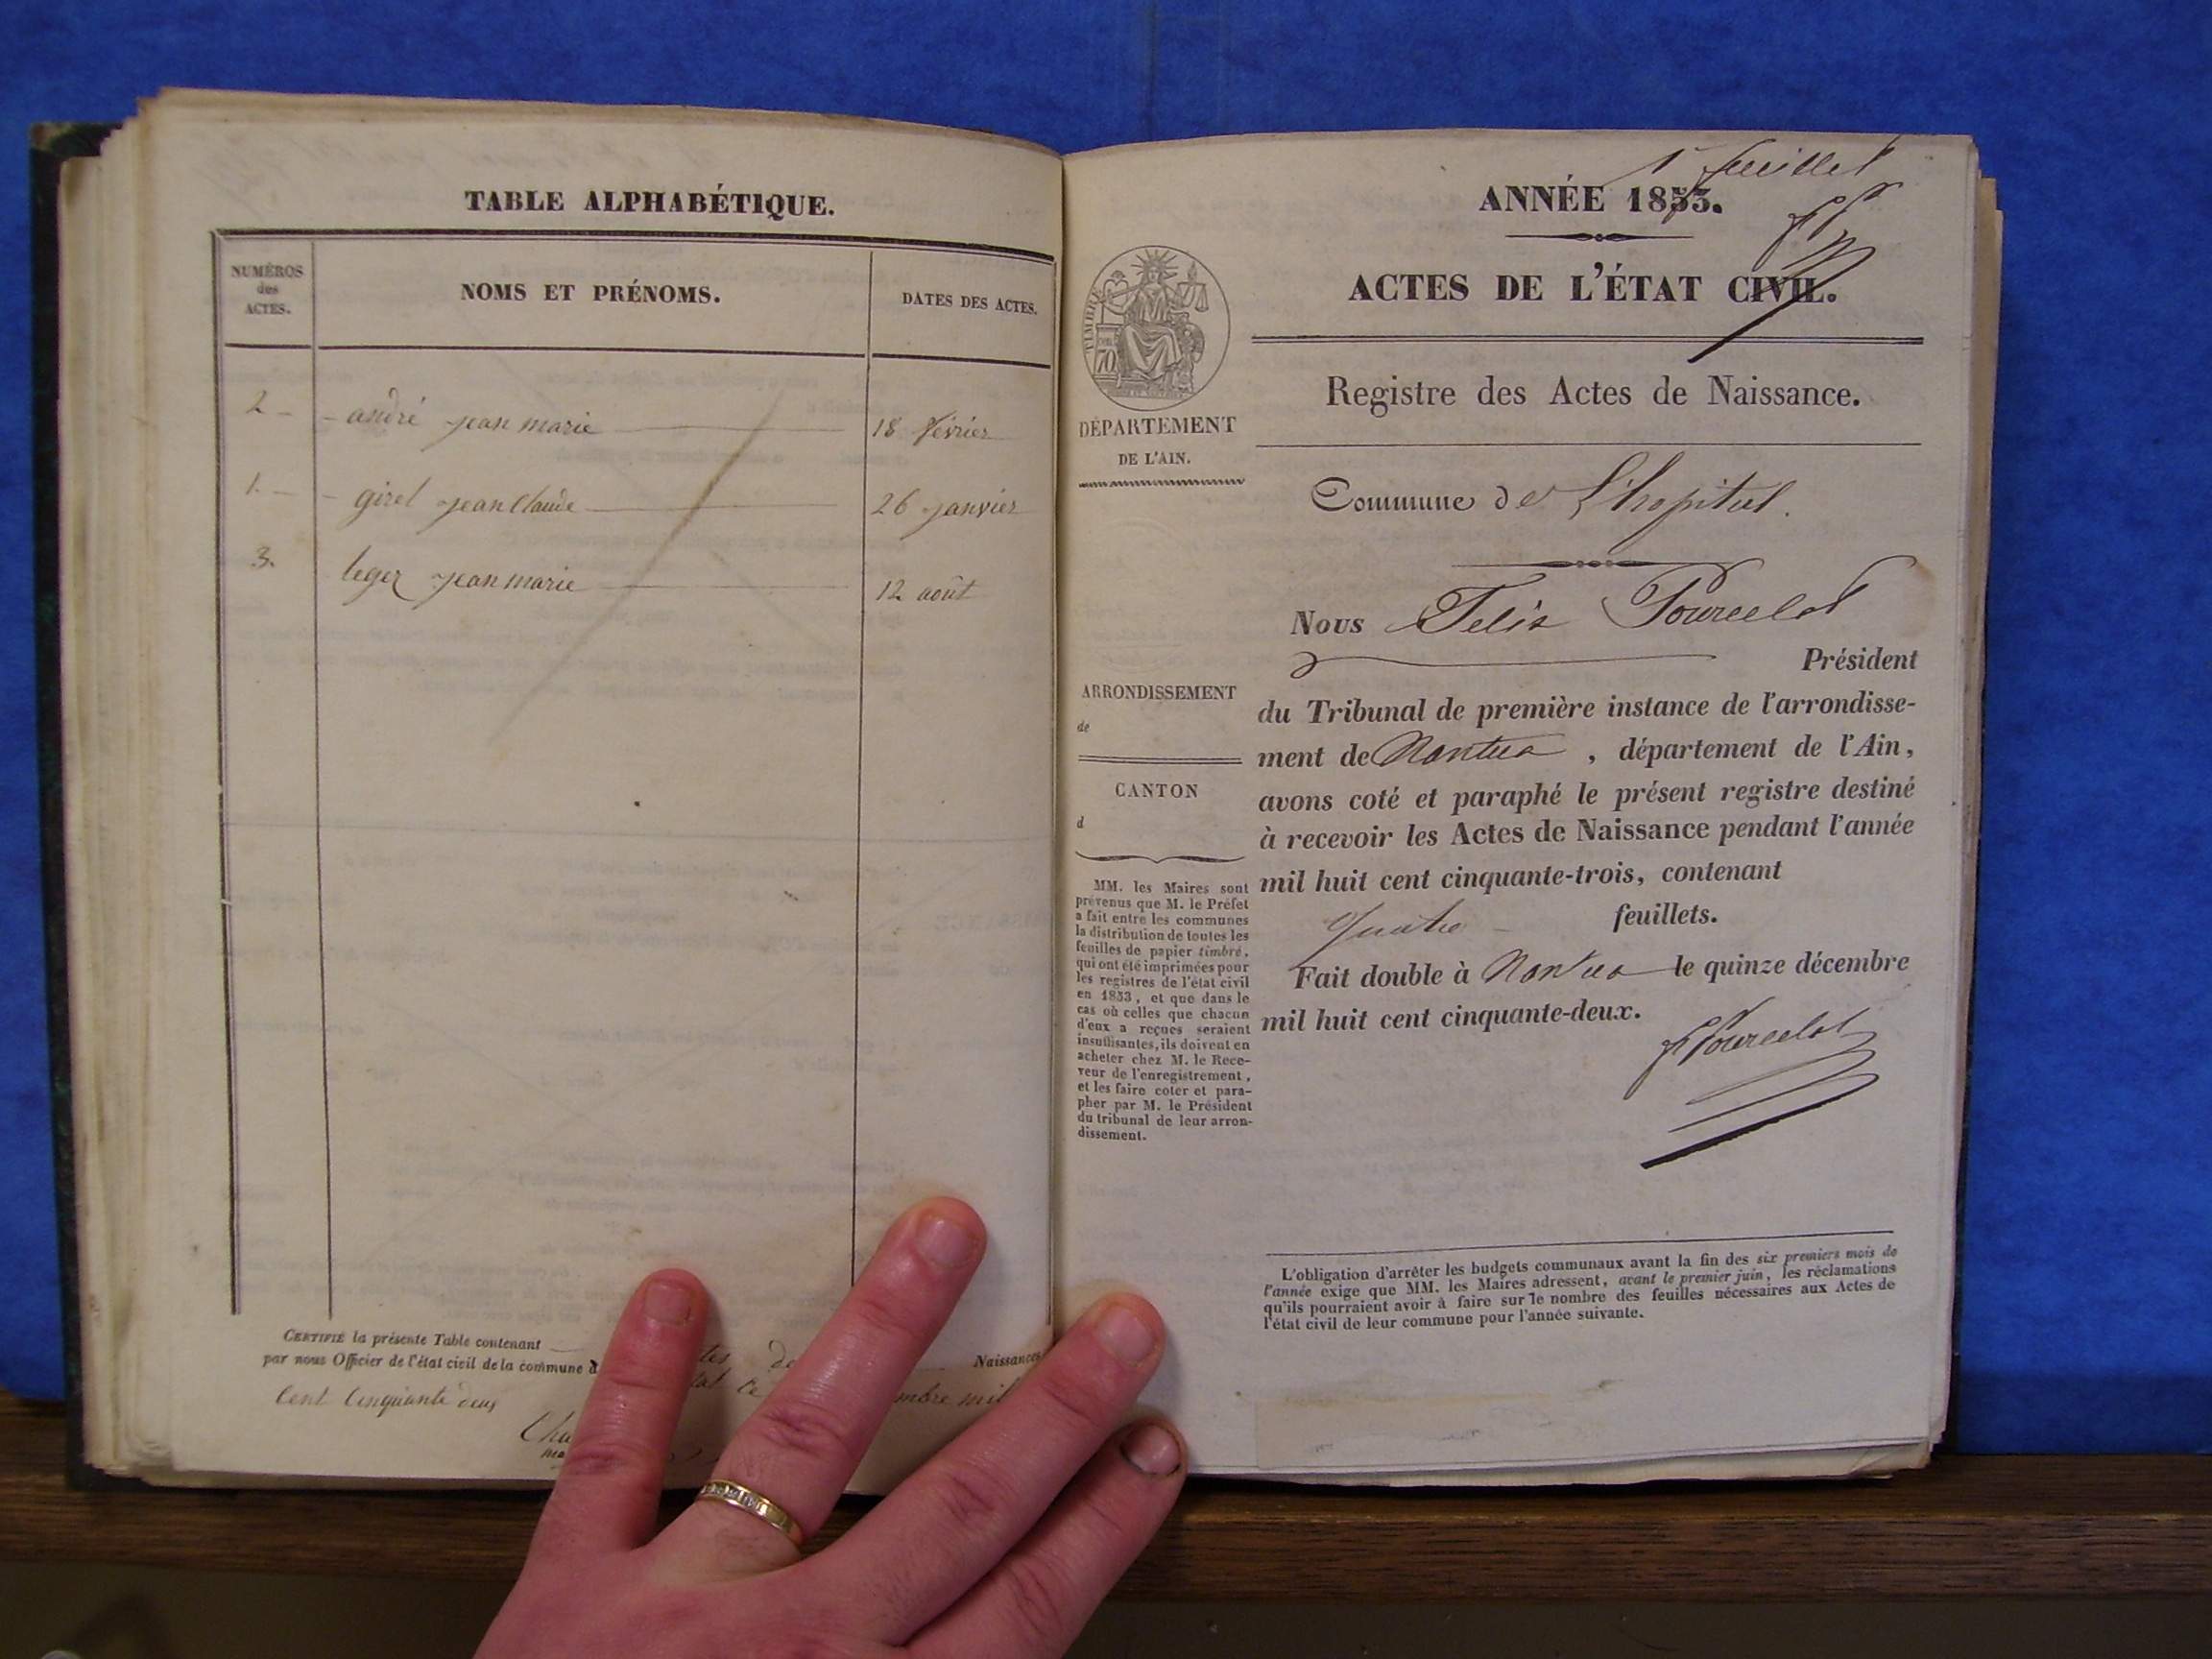 TABLE ALPHABÉTIQUE.
NUMÉROS des ACTES.
NOMS ET PRÉNOMS.
DATES DES ACTES.
2 - - andré jean marie 18 février
1. - - girel jean Claude 26 janvier
3. leger jean marie 12 août
CERTIFIÉ la présente Table contenant tes de Naissances
par nous Officier de l'état civil de la commune d ce mbre mil
Cent Cinquante deux
Cha
ma
1r feuillet
ANNÉE 1853.
ACTES DE L'ÉTAT CIVIL.
TIMBRE
70
DÉPARTEMENT
DE L'AIN.
Registre des Actes de Naissance.
Commune de L'hopital.
Nous Felix Pourcelot
Président
ARRONDISSEMENT
de
CANTON
d
du Tribunal de première instance de l'arrondisse-
ment de Nantua , département de l'Ain,
avons coté et paraphé le présent registre destiné
à recevoir les Actes de Naissance pendant l'année
mil huit cent cinquante-trois, contenant
quatre feuillets.
Fait double à Nantua le quinze décembre
mil huit cent cinquante-deux.
F Pourcelot
MM. les Maires sont
prévenus que M. le Préfet
a fait entre les communes
la distribution de toutes les
feuilles de papier timbré,
qui ont été imprimées pour
les registres de l'état civil
en 1853, et que dans le
cas où celles que chacun
d'eux a reçues seraient
insuffisantes, ils doivent en
acheter chez M. le Rece-
veur de l'enregistrement,
et les faire coter et para-
pher par M. le Président
du tribunal de leur arron-
dissement.
L'obligation d'arrêter les budgets communaux avant la fin des six premiers mois de
l'année exige que MM. les Maires adressent, avant le premier juin, les réclamations
qu'ils pourraient avoir à faire sur le nombre des feuilles nécessaires aux Actes de
l'état civil de leur commune pour l'année suivante.